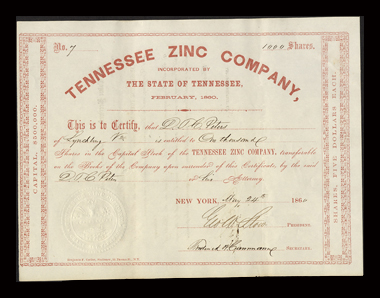 No. 7
1000 Shares.
TENNESSEE ZINC COMPANY,
INCORPORATED BY
THE STATE OF TENNESSEE,
FEBRUARY, 1860.
This is to Certify, that D. T. C. Peters
of Lynchburg Va is entitled to One thousand
Shares in the Capital Stock of the TENNESSEE ZINC COMPANY, transferable
on the Books of the Company upon surrender of this Certificate by the said
D. T. C. Peters or his Attorney
NEW YORK, May 24th 1860
PRESIDENT.
SECRETARY.
CAPITAL, $500,000.
SHARES, FIVE DOLLARS EACH.